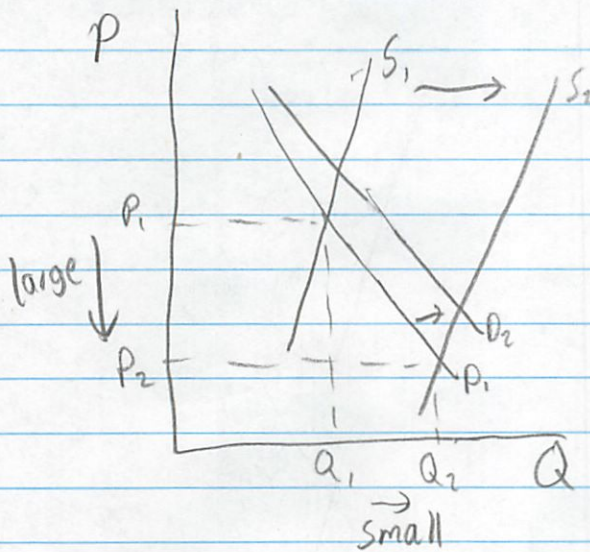 P
S₁
S₂
P₁
large
P₂
D₂
D₁
Q₁
Q₂
Q
small